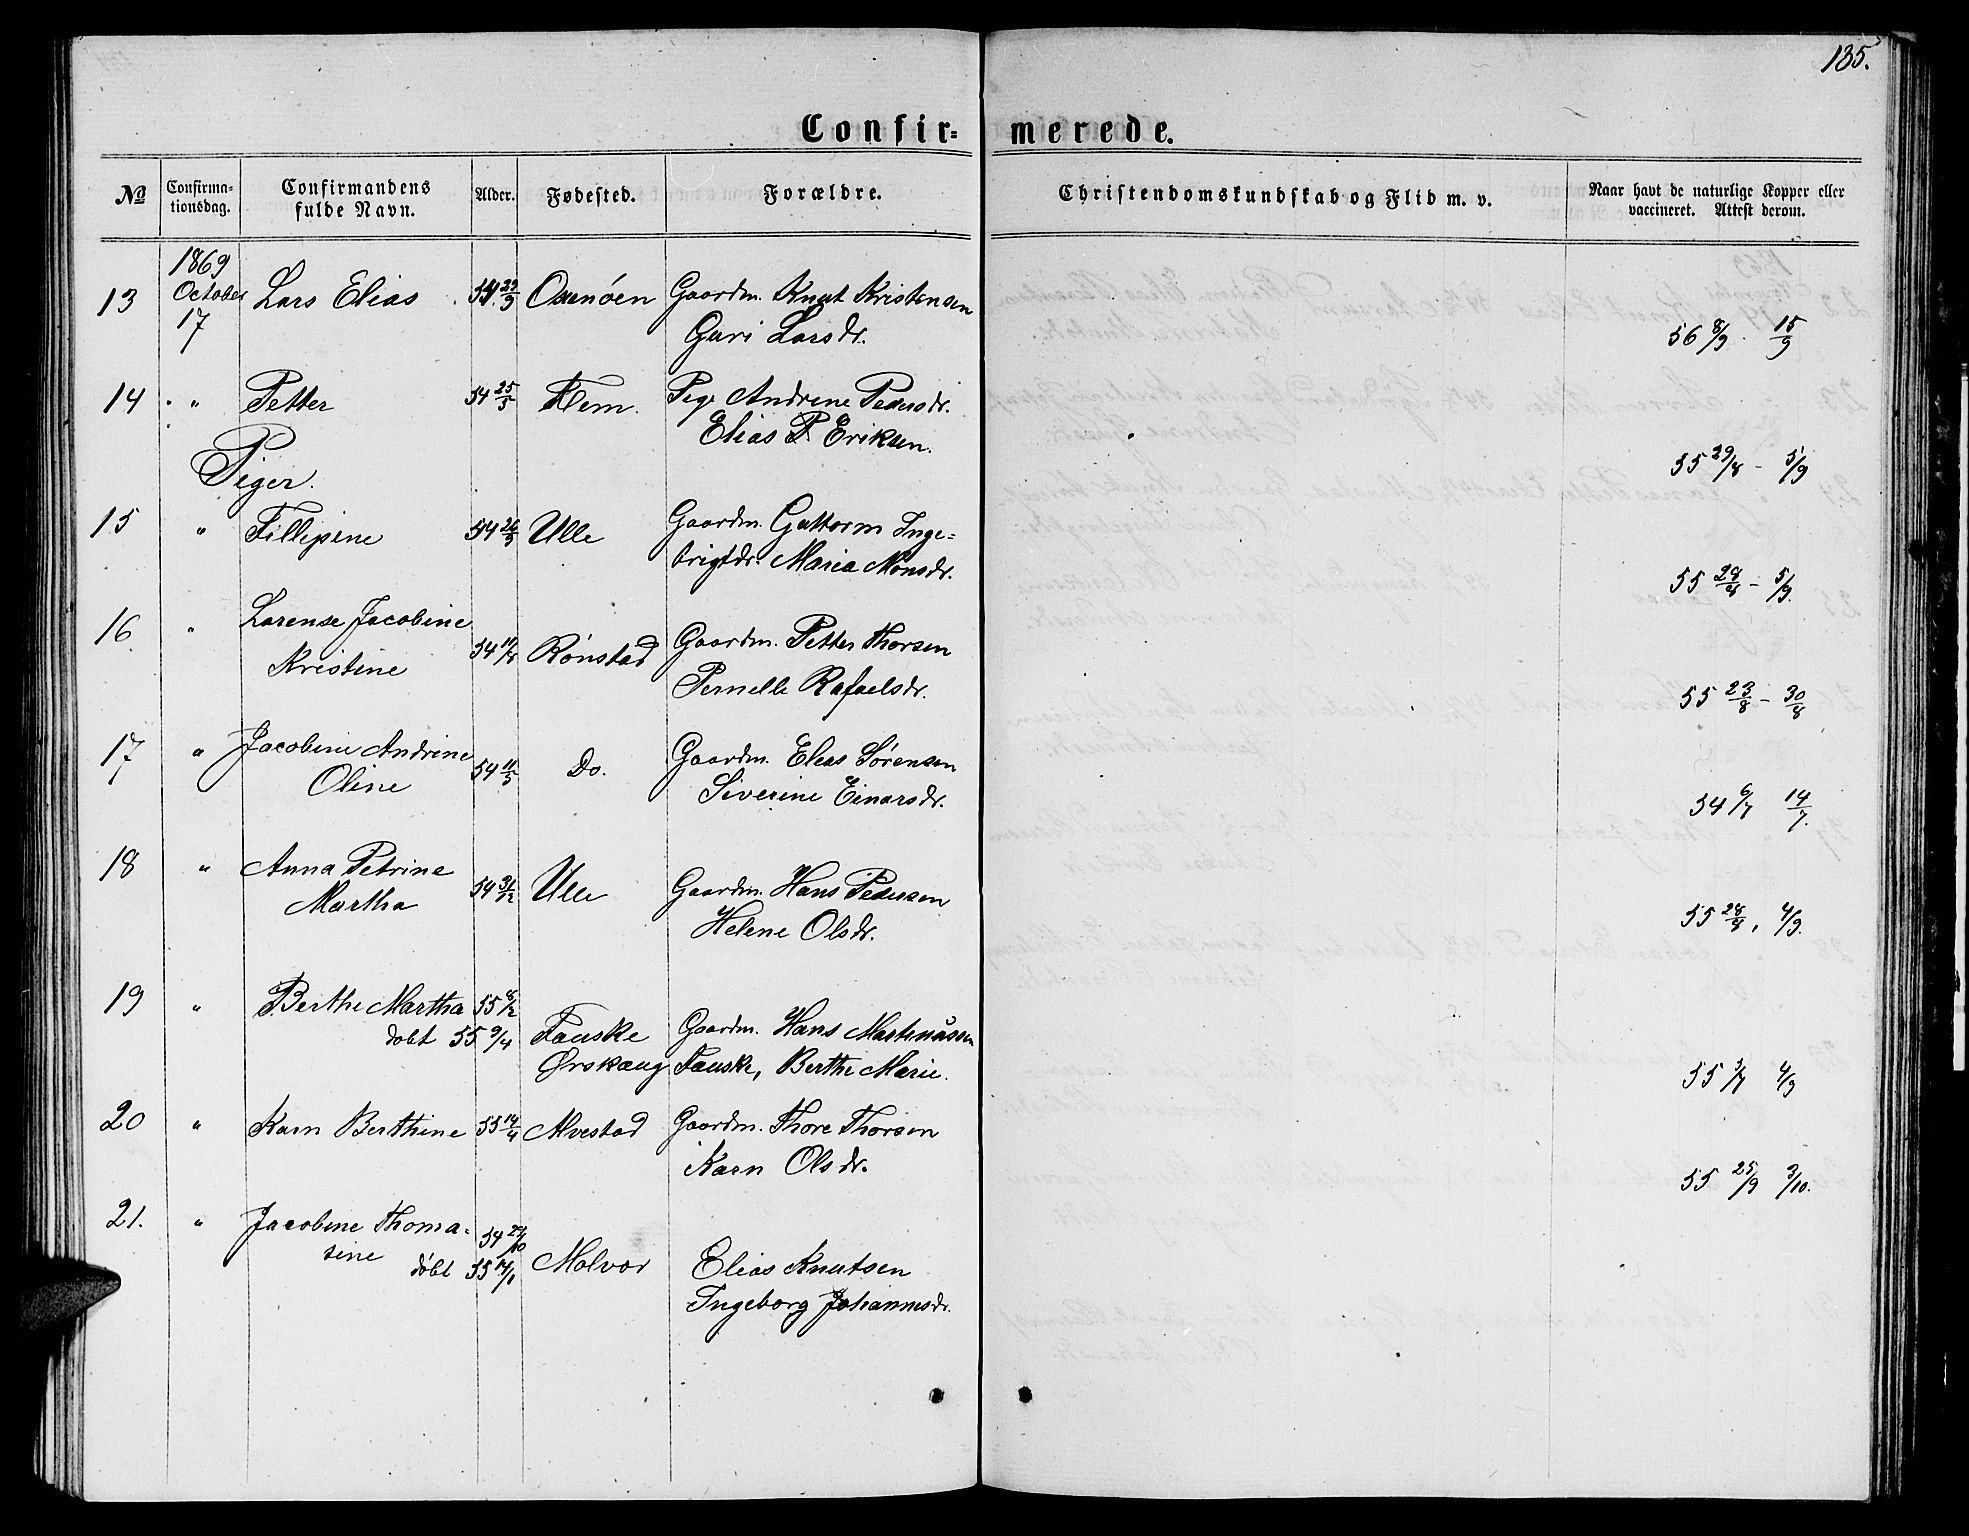 135.
Confir= merede.
№ Confirma-tionsdag. Confirmandens fulde Navn. Alder. Fødested. Forældre. Christendomskundskab og Flid m. v. Naar havt de naturlige Kopper eller vaccineret. Attest derom.
1869
13 October Lars Elias Oxenöen Gaardm. Knut Kristensen
17 Guri Larsdr. 56 8/9. 15/9
14 " Petter 54 25/5 Hem. Pige Andrine Pedersdr.
Elias P. Eriksen.
Piger. 55 29/8 - 5/9
15 " Fillipine 54 26/5 Ulle Gaardm. Guttorm Inge=
brigtdr. Maria Monsdr.
55 29/8 - 5/9.
16. " Lorense Jacobine
Kristine Rönstad Gaardm. Petter Thorsen
Pernelle Rafaelsdr.
55 23/8 - 30/8
17 " Jacobine Andrine 54 11/5 Do. Gaardm. Elias Sørensen
Oline Siverine Einarsdr.
54 6/7 14/7.
18 " Anna Petrine
Martha 54 31/12 Ulle Gaardm. Hans Pedersen
Helene Olsdr. 55 28/8, 4/9.
19 " Berthe Martha 55 8/2
döbt 55 9/4 Fauske Gaardm. Hans Martinussen
Ørskaug Fauske, Berthe Marie.
55 3/7 4/9
20 " Karn Berthine 55 14/4 Alvestad Gaardm. Thore Thorsen
Karn Olsdr.
55 25/9 3/10.
21. " Jacobine Thoma-
sine 54 29/10
döbt 55 14/1 Molvær Elias Knutsen
Ingeborg Johannesdr.